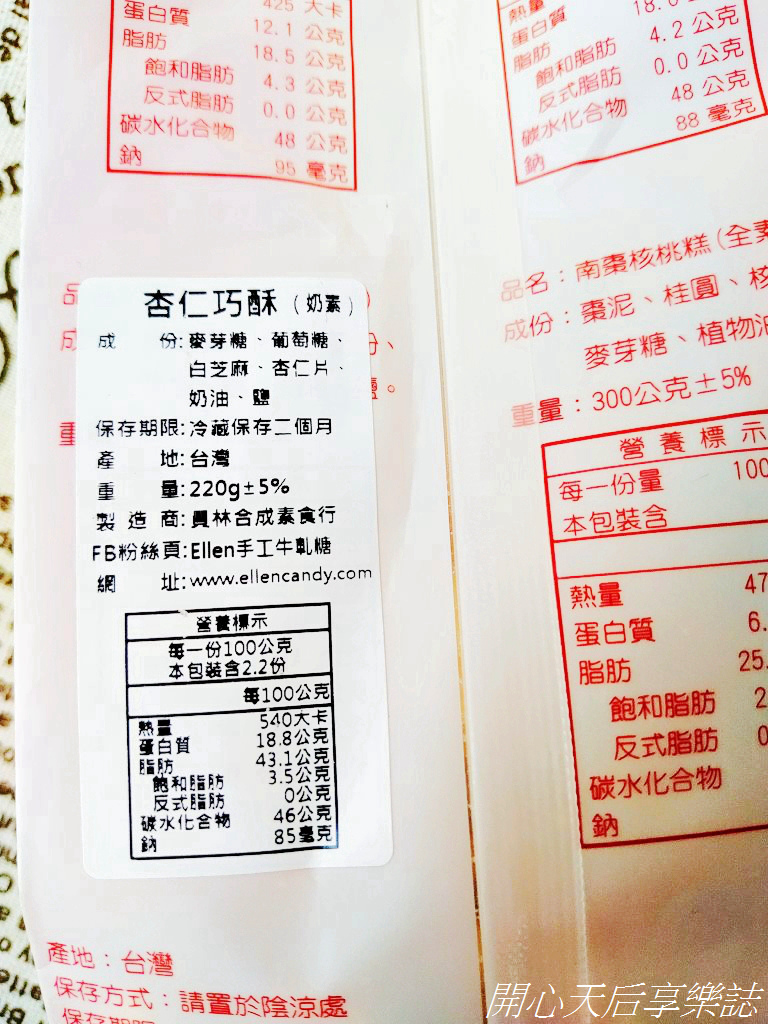 425 大卡
蛋白質 12.1 公克
脂肪 18.5 公克
飽和脂肪 4.3 公克
反式脂肪 0.0 公克
碳水化合物 48 公克
鈉 95 毫克
熱量
蛋白質 4.2 公克
脂肪
飽和脂肪 0.0 公克
反式脂肪 48 公克
碳水化合物 88 毫克
鈉
杏仁巧酥（奶素）
成份:麥芽糖、葡萄糖、
白芝麻、杏仁片、
奶油、鹽
保存期限:冷藏保存二個月
產地:台灣
重量:220g±5%
製造商:員林合成素食行
FB粉絲頁:Ellen手工牛軋糖
網址:www.ellencandy.com
營養標示
每一份100公克
本包裝含2.2份
每100公克
熱量 540大卡
蛋白質 18.8公克
脂肪 43.1公克
飽和脂肪 3.5公克
反式脂肪 0公克
碳水化合物 46公克
鈉 85毫克
產地：台灣
保存方式：請置於陰涼處
保存期限
品名：南棗核桃糕(全素
成份：棗泥、桂圓、核
麥芽糖、植物油
重量：300公克±5%
營養標示
每一份量 100
本包裝含
熱量 47
蛋白質 6.
脂肪 25.
飽和脂肪 2
反式脂肪 0
碳水化合物
鈉
開心天后享樂誌